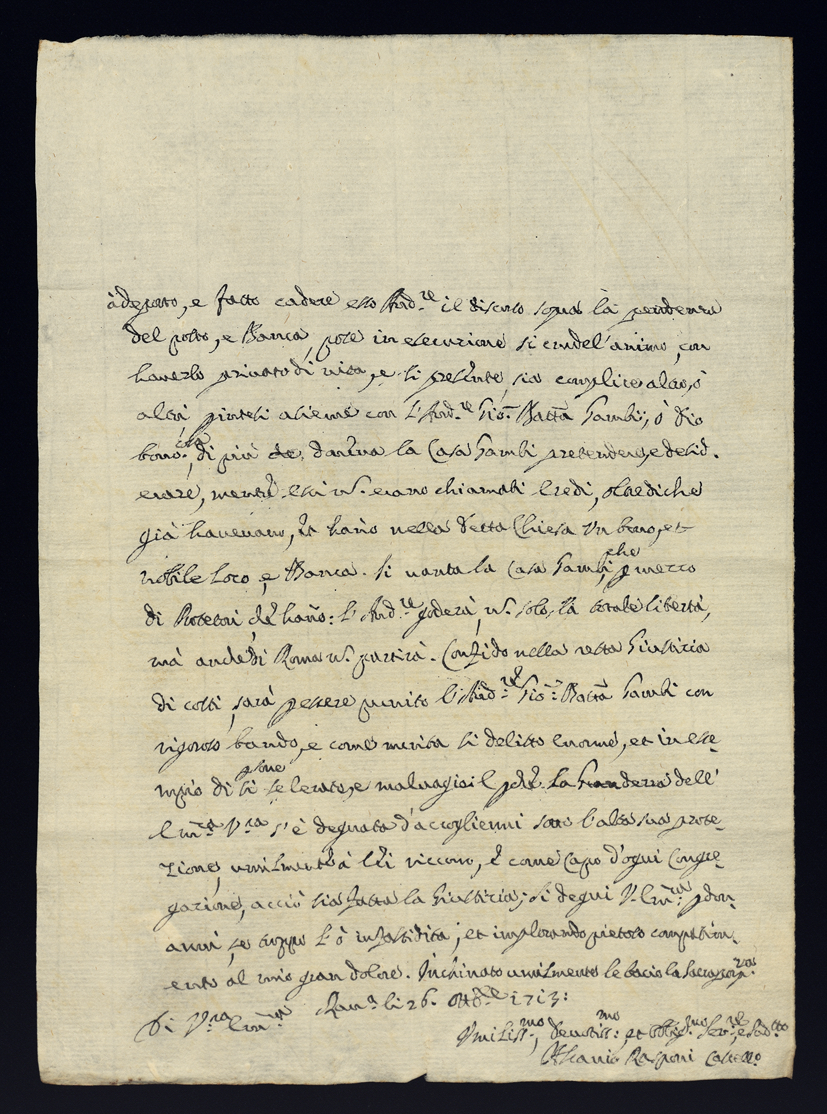 e fatto cadere esso And.re il discorso sopra la pendenza
del posto, e Banca, pose in esecuzione si crudel' animo, con
haverlo privato di vita, e si presente, sia complice alcuo, ò
altri, assieme con l'And.re Gio: Batta Gambi; ò Dio
bono, di più che la Casa Gambi pretendere, e desid-
erare, mentre essi n. erano chiamati Eredi, oltrediche
già havevano, et hano nella detta Chiesa un bono, et
nobile Loco, e Banca. Si vanta la Casa Gambi, che p mezzo
di Protetori, che hano: l'And.re goderà, n. solo, la totale libertà,
mà anche di Roma n. partirà. Confido nella retta Giustitia
di costì, sarà p essere punito l'And.re Gio: Batta Gambi con
rigoroso bando, e come merita si delitto enorme, et in ese-
mpio di si scelerate, e malvagie La dell'
Em.za V.ra s'è degnata d'accogliermi sotto l'alta sua prote-
zione, umilmente à lei ricorro, e come Capo d'ogni Congre-
gazione, acciò sia fatta la Giustitia; si degni V. Em.za pdon-
armi, se troppo l'ò infastidita; et implorando pietoso compatim-
ento al mio gran dolore. Inchinato umilmente le bacio la Sacra
Di V.ra Em.za li 26. Ott.bre 1713:
Umiliss.mo, Devotiss.mo, et Obblig.mo Ser.re,
Ascanio Rasponi